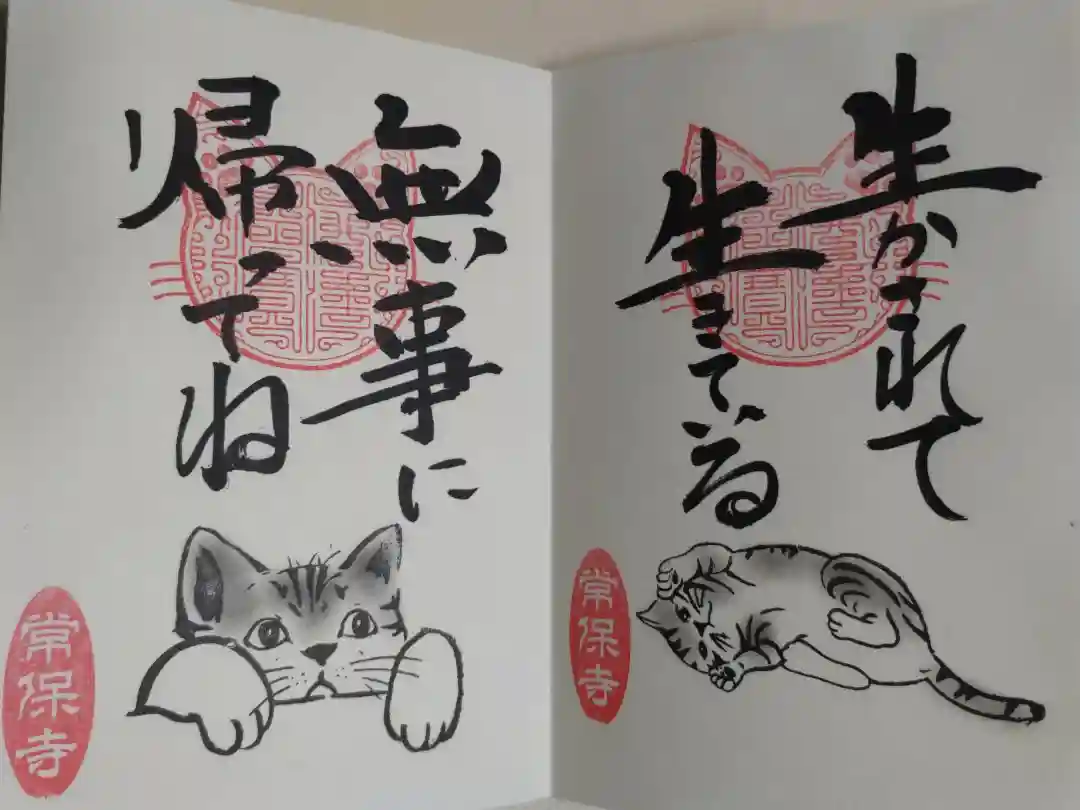 生かされて
生きている
常保寺
無事に
帰ってね
常保寺